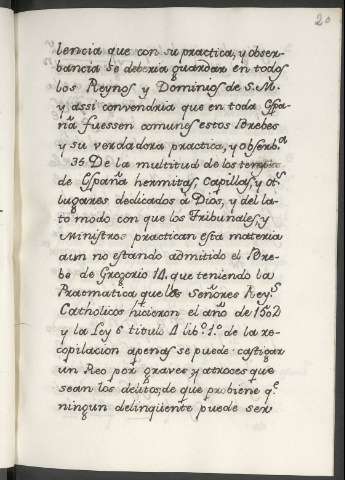 20
lencia que con su practica, y obser-
bancia se deberia guardar en todos
los Reynos y Dominios de S. M.
y assi convendria que en toda Espa-
ña fuessen comunes estos Brebes
y su verdadera practica, y obserb.ª
36 De la multitud de los templos
de España hermitas, Capillas, y ot.s
lugares dedicados à Dios, y del la-
to modo con que los Tribunales, y
Ministros practican esta materia
aun no estando admitido el Bre-
be de Gregorio 14, que teniendo la
Pracmatica que los Señores Rey.s
Catholicos hicieron el año de 1502
y la Ley 6 titulo 4 lib.º 1.º de la re-
copilacion apenas se puede castigar
un Reo por graves, y atroces que
sean los delitos; de que probiene q.e
ningun delinqüente puede ser